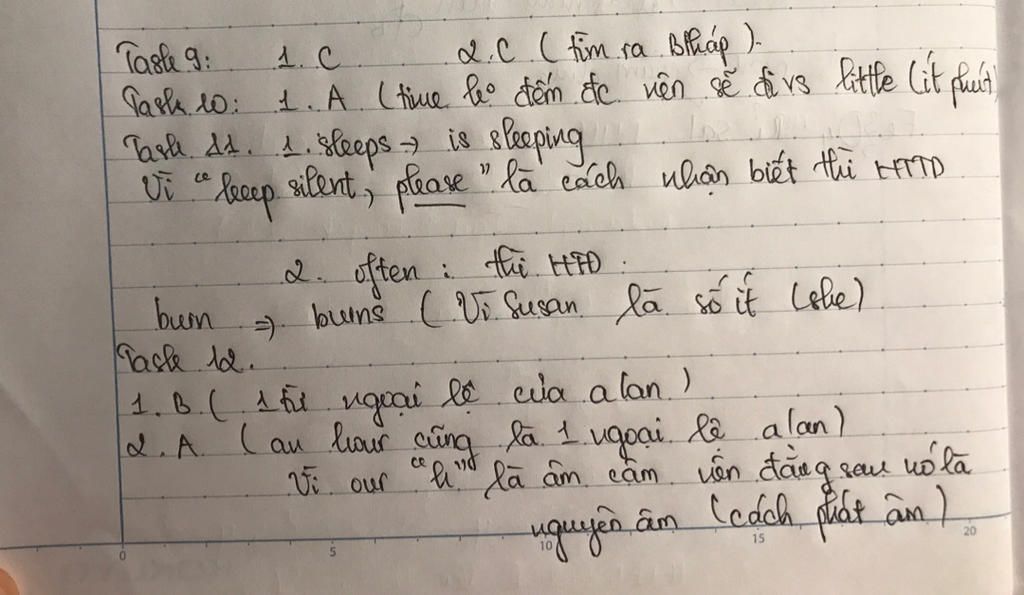 Task 9: 1. C 2. C (tìm ra BPháp).
Task 10: 1. A (time ko đếm đc nên sẽ đi vs little (ít phút)
Task 11. 1. sleeps → is sleeping
Vì "keep silent, please" là cách nhận biết thì HTTD
2. often: thì HTĐ.
burn ⇒ burns (Vì Susan là số ít (she)
Task 12.
1. B (1 từ ngoại lệ của a/an)
2. A (an hour cũng là 1 ngoại lệ a/an)
Vì our "h" là âm câm nên đằng sau nó là
nguyên âm (cách phát âm)
0 5 10 15 20